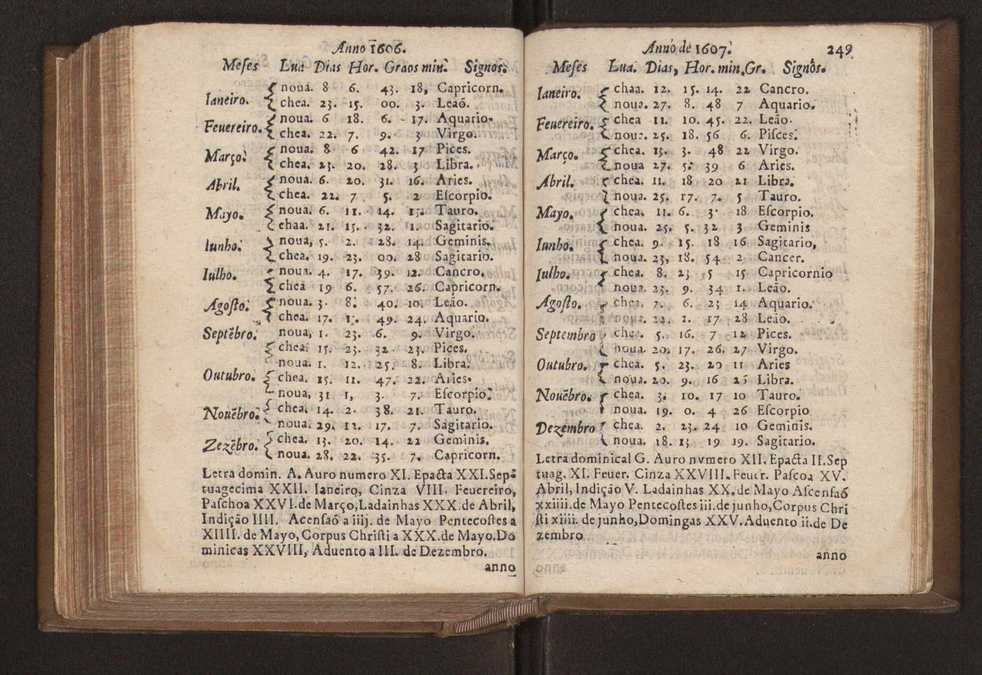 Anno 1606.
Meses Lua Dias Hor. Graos min. Signos.
Ianeiro. { noua. 8 6. 43. 18, Capricorn.
chea. 23. 15. 00. 3. Leaõ.
Feuereiro. { noua. 6 18. 6. 17. Aquario.
chea. 22. 7. 9. 3 Virgo.
Março. { noua. 8 6 42. 17 Pices.
chea. 23. 20. 28. 3 Libra.
Abril. { noua. 6. 20. 31. 16. Aries.
chea. 22. 7 5. 2 Eſcorpio.
Mayo. { noua. 6. 11. 14. 15. Tauro.
ehaa. 21. 15. 32. 1. Sagitario.
Iunho. { noua, 5. 2. 28. 14. Geminis.
chea. 19. 23. 00. 28 Sagitario.
Iulho. { noua. 4. 17. 39. 12. Cancro.
chea 19 6. 57. 26. Capricorn.
Agoſto. { noua. 3. 8. 40. 10. Leão.
chea. 17. 1. 49. 24. Aquario.
Septẽbro. noua, 1. 23. 6. 9. Virgo.
{ chea. 15. 23. 32 23. Pices.
Outubro. noua. 1. 12. 25. 8. Libra.
{ chea. 15. 11. 47. 22. Aries.
noua, 31 1, 3. 7. Eſcorpio.
Nouẽbro. { chea. 14. 2. 38. 21. Tauro.
noua. 29. 12. 17. 7. Sagitario.
Zezẽbro. { chea. 13. 20. 14. 22 Geminis.
noua. 28. 22. 35. 7. Capricorn.
Letra domin. A. Auro numero XI. Epacta XXI. Sep-
tuagecima XXII. Ianeiro, Cinza VIII. Feuereiro,
Paſchoa XXVI. de Março, Ladainhas XXX. de Abril,
Indição IIII. Acenſaõ a iiij. de Mayo Pentecoſtes a
XIIII. de Mayo, Corpus Chriſti a XXX. de Mayo. Do
minicas XXVIII, Aduento a III. de Dezembro.
anno
Anno de 1607. 249
Meſes Lua. Dias, Hor. min, Gr. Signos.
Ianeiro. { chaa. 12. 15. 14. 22 Cancro.
noua. 27. 8. 48 7 Aquario.
Feuereiro. { chea 11. 10. 45. 22. Leão.
noua. 25. 18. 56 6. Piſces.
Março. { chea. 13. 3. 48 22 Virgo.
noua 27. 5. 39 6 Aries.
Abril. { chea. 11. 18 20 21 Libra.
noua. 25. 17. 7. 5 Tauro.
Mayo. { chea. 11. 6. 3. 18 Eſcorpio.
noua. 25. 5. 32 3 Geminis
Iunho. { chea. 9. 15. 18 16 Sagitario,
noua. 23, 18. 54 2 Cancer.
Iulho. { chea. 8. 23 5 15 Capricornio
noua. 23. 9. 34 1. Leão.
Agoſto. { chea. 7. 6. 23 14 Aquario.
noua. 1. 17 28 Leão.
Septembro { chea. 5. 16. 7 12 Pices.
noua. 20. 17. 26. 27 Virgo.
Outubro. { chea. 5. 23. 20 11 Aries
noua. 20. 9. 16 Libra.
Nouẽbro. { chea. 3. 10. 17 10 Tauro.
noua. 19. 0. 4 26 Eſcorpio
Dezembro { chea. 2. 23. 24 10 Geminis.
noua. 18. 13 19 19. Sagitario.
Letra dominical G. Auro nvmero XII. Epacta II. Sep
tuag. XI. Feuer. Cinza XXVIII. Feuer. Paſcoa XV.
Abril, Indição V. Ladainhas XX. de Mayo Aſcenſaõ
xxiiii. de Mayo Pentecoſtes iii. de junho, Corpus Chri
ſti xiiii. de junho, Domingas XXV. Aduento ii. de De
zembro
anno